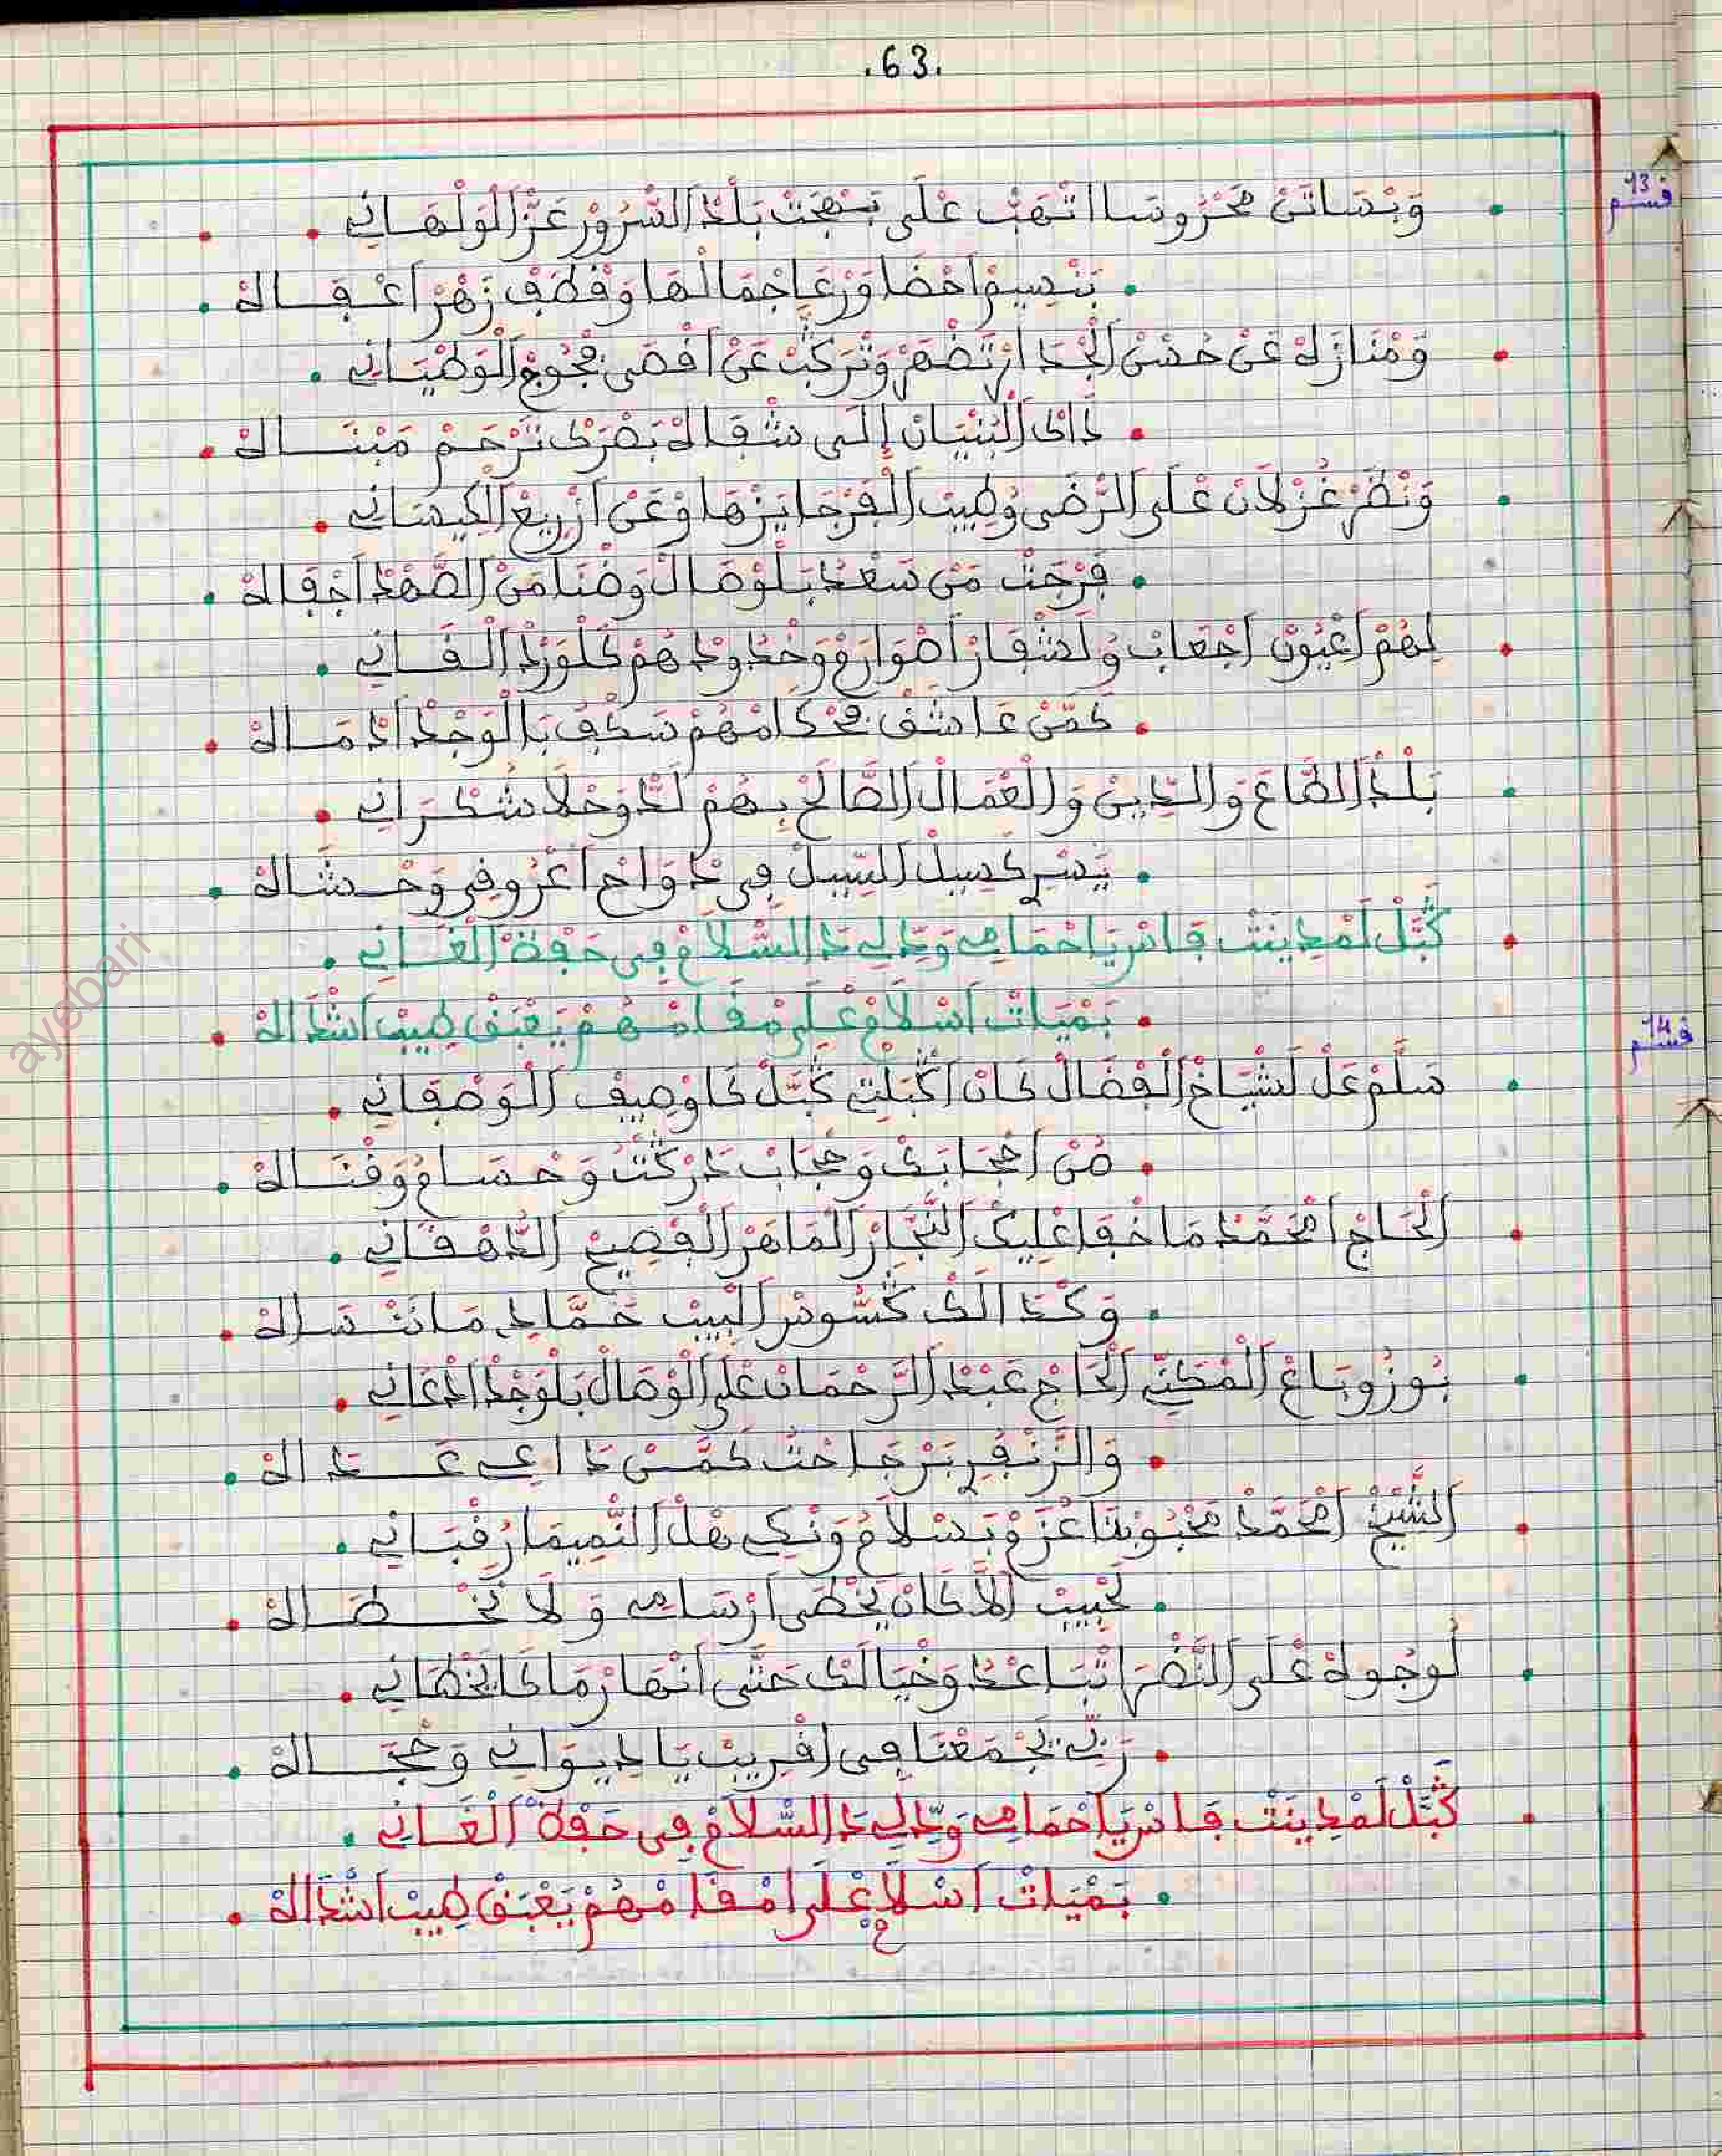 .63.
قسم 13
وَبْسَاتَنْ مَحْرُوسَا اتْهَبْ عْلَى بَهْجَتْ بَلْدْ السّْرُورْ عَزّْ الْوَلْهَانِي
بَنْسِيمْ اخْضَا وَرْعَا جْمَالْهَا وَقْطَفْ زْهَرْ اغْفَالهْ
وَمْنَازَهْ عَنْ حُسْنْ الْجْدَا
ذَاكْ الْبَنْيَانْ إِلَى شْفَالهْ بَصْرَكْ تَرْحَمْ مَبْنَالهْ
وَنْظَرْ غُزْلَانْ عْلَى الرّْضَى وُطِيبْ الْفَرْجَا
فَرْجَتْ مَنْ سَعْدُ بَلْوْصَالْ وَضْنَا مَنْ الصَّهْدْ اجْفَالهْ
لِهُمْ اعْيُونْ اجْعَابْ وُلَشْفَارْ اصْوَارَمْ وَخْدُودْهُمْ كَلْوَرْدْ الْقَانِي
كَمَّنْ عَاشَقْ مَحْكَامْهُمْ سَكْفُ بَالْوَجْدْ ادْمَالهْ
بَلْدْ الطَّاعَ وَالدِّينْ وَالْعْمَالْ الصَّالَحْ بِهُمْ لَدّْ وَحْلَا شُكْرَانِي
يَسْرِ كَسِيلْ السِّيلْ فِي دْوَاخْ اعْرُوقِي وَحْشَالهْ
كُبَّلْ لَمْدِينَتْ فَاسْ يَا حْمَامِي وَدِّي لِي دَا السّْلَامْ فِي حَقْةْ الْغَانِي
بَمْيَاتْ اسْلَامْ عْلَى مْقَامْهُمْ يَعْبَقْ طِيبْ اشْدَالهْ
قسم 14
سَلَّمْ عَلْ لَشْيَاخْ الْفْضَالْ كَانْ اكْبَلْتِ كُبَّلْ كَا وْصِيفْ الْوَصْفَانِي
مُنْ احْجَابَكْ وَحْجَابْ دَرْكْتُ وَحْسَامُ وَقْنَالهْ
الْحَاجْ امْحَمَّدْ مَا خْفَا عْلِيكْ النَّجَّارْ الْمَاهَرْ الْفْصِيحْ الدَّهْقَانِي
وَكْدَالَكْ كَسُّوسْ الْبِيبْ حَمَّادِي مَا نَنْسَالهْ
بُوزُوبَاعْ الْمَكْنِّي الْحَاجْ عَبْدْ الرَّحْمَانْ عْلَى الْوْصَالْ بَلْوَجْدْ ادْعَانِي
وَالزَّنْبَقِي بَرْجَاحْتُ كَمَّنْ دَاعِي عَدَالهْ
الشِّيخْ امْحَمَّدْ مَحْبُوبْنَا عْزَمْ بَسْلَامُ وَنْكِي هْلْ النّْمِيمَا رُقْبَانِي
لَحْبِيبْ الَّا كَانْ يَخْطَى ارْسَامِي وَلَا نَخْطَالهْ
لَوْجُوهْ عْلَى النَّضْرَا تْبَاعْدُ وَخْيَالَكْ حَتَّى انْهَارْ مَا كَا يَخْطَانِي
رَبِّي يَجْمَعْنَا فِي اقْرِيبْ يَا دِيوَانِي وَحْجَالهْ
كُبَّلْ لَمْدِينَتْ فَاسْ يَا حْمَامِي وَدِّي لِي دَا السّْلَامْ فِي حَقْةْ الْغَانِي
بَمْيَاتْ اسْلَامْ عْلَى امْقَامْهُمْ يَعْبَقْ طِيبْ اشْدَالهْ
ayebari